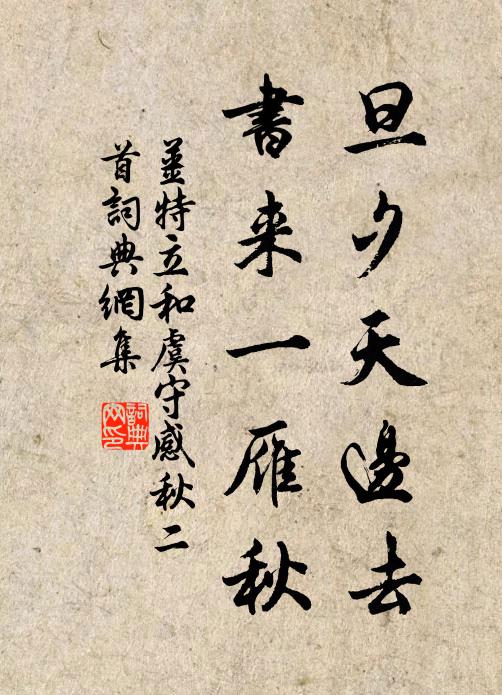 旦夕天邊去
書来一雁秋
姜特立和虞守感秋二
首詞典網集
詞典
网印